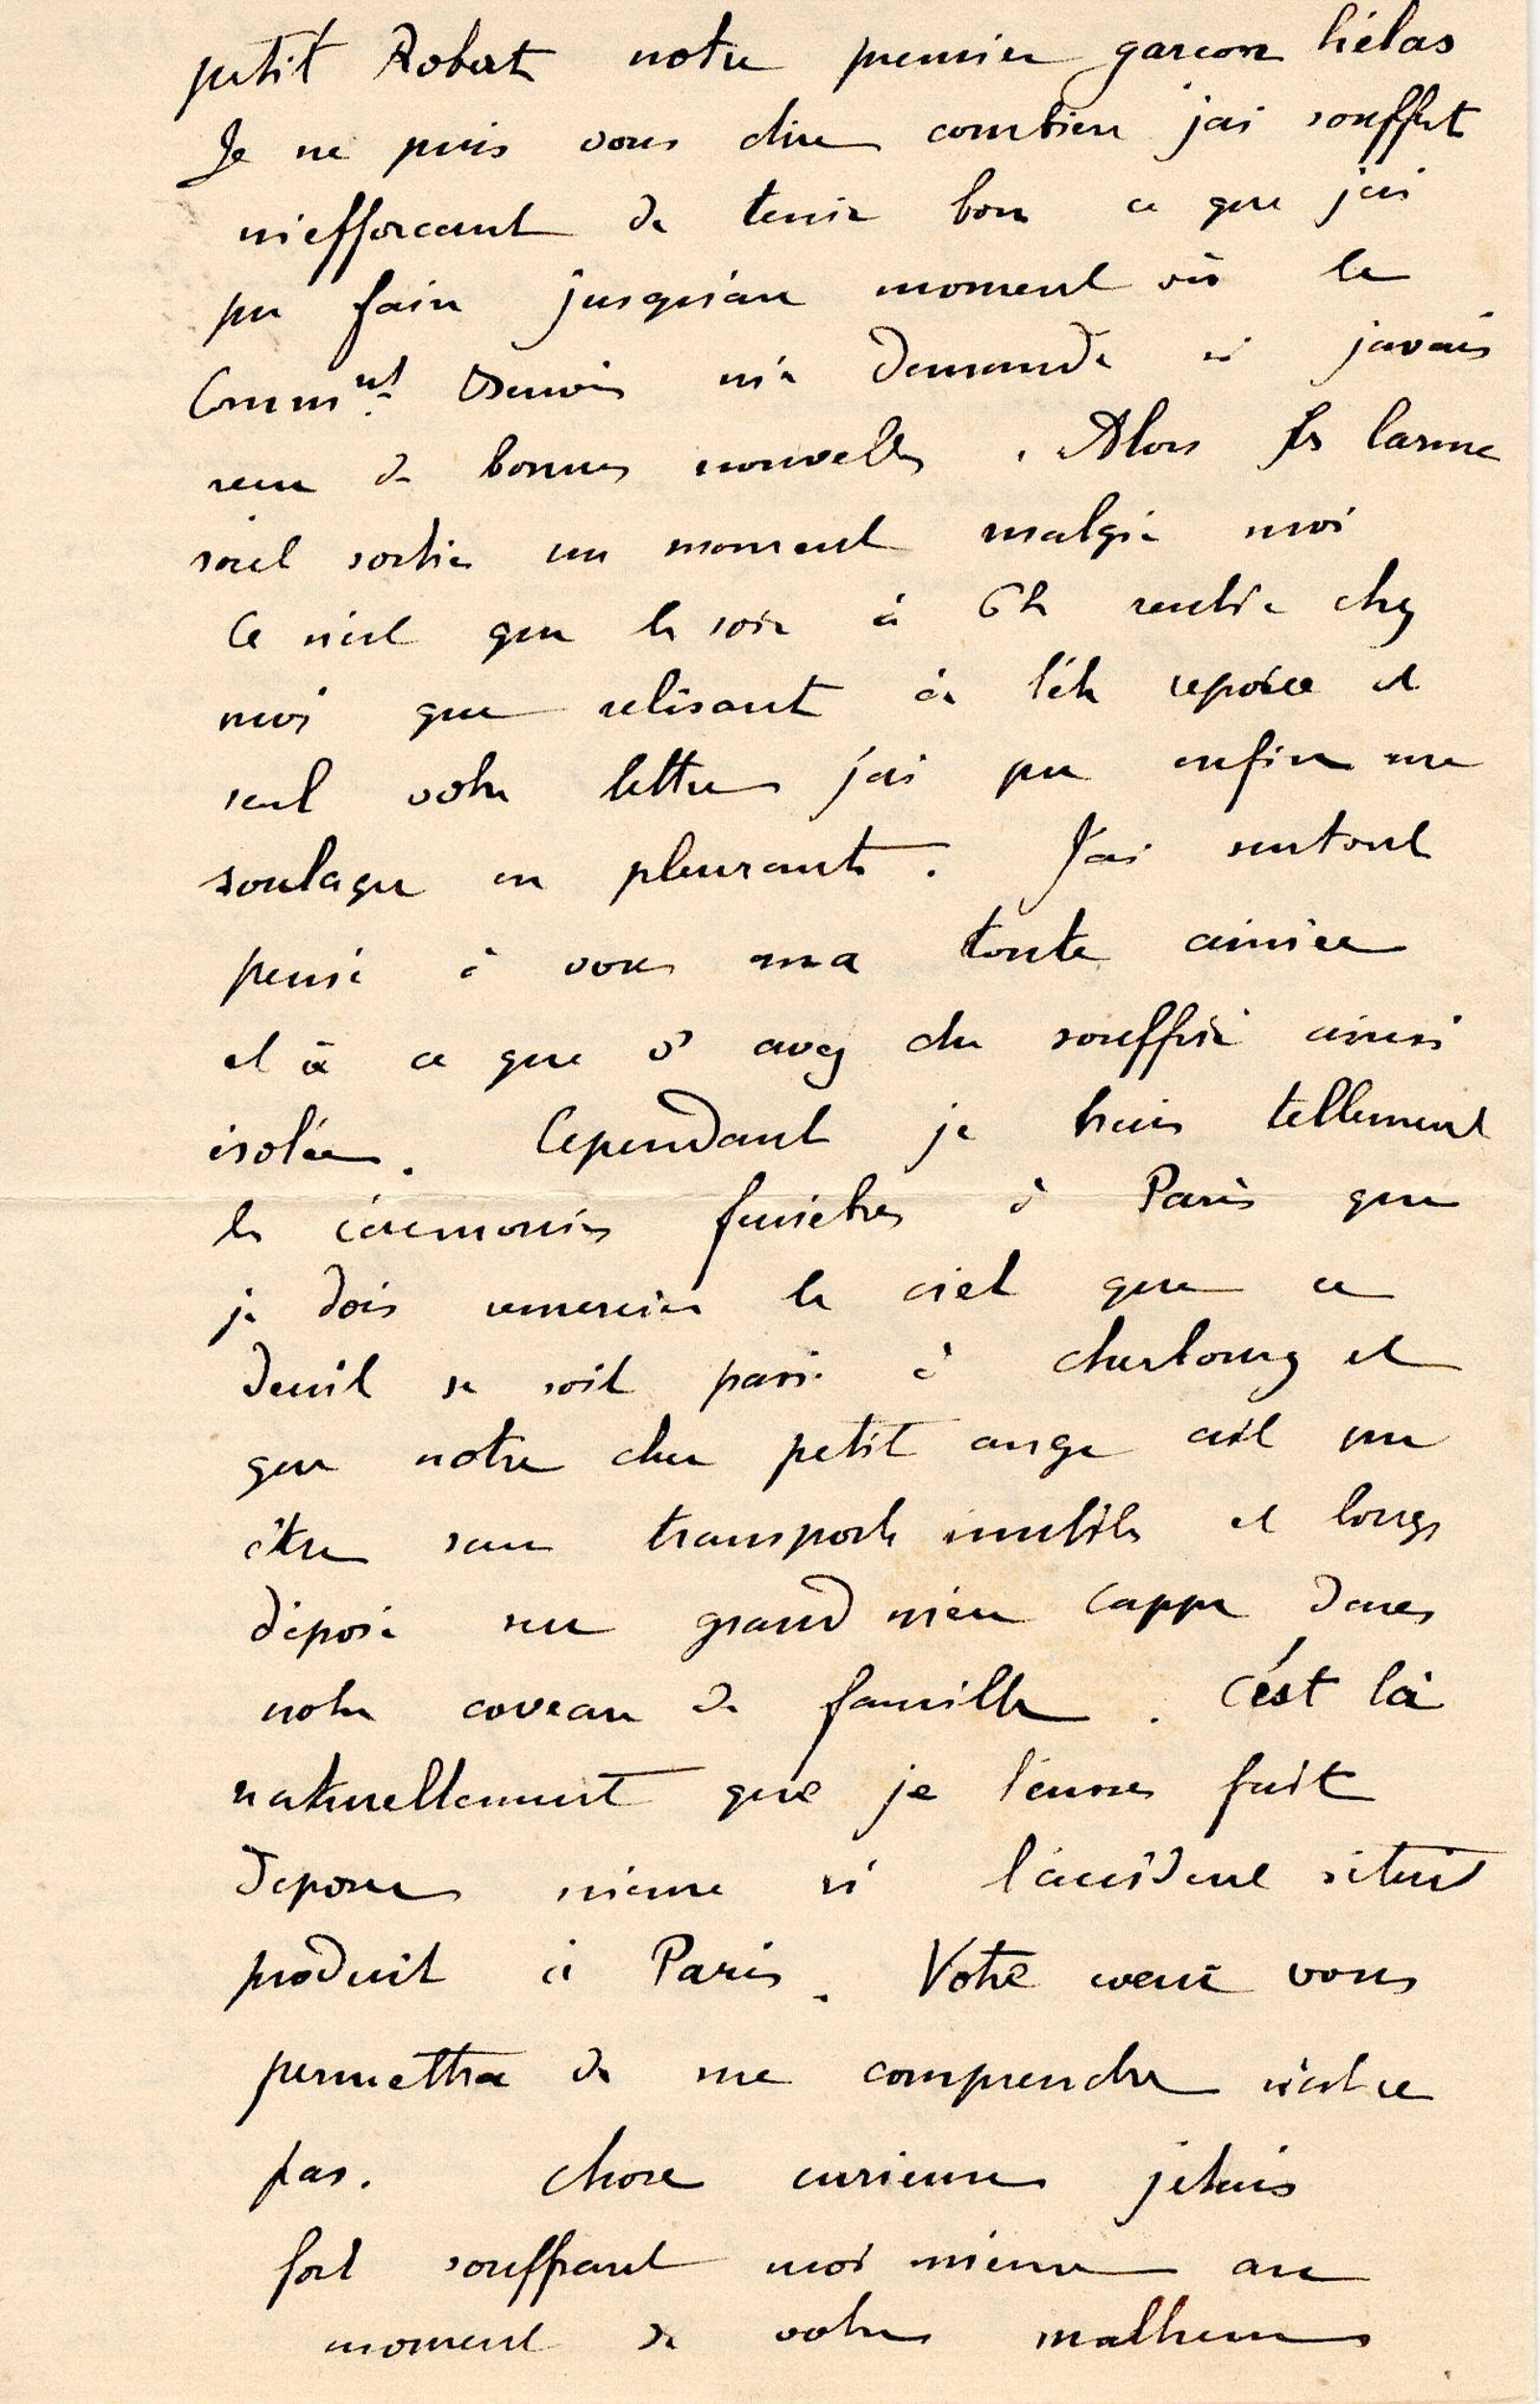 petit Robert notre premier garcon hélas
Je ne puis vous dire combien j'ai souffert
m'efforcant de tenir bon ce que j'ai
pu faire jusqu'au moment où le
Comm<sup>nt</sup> m'a demandé si j'avais
recu de bonnes nouvelles. Alors les larme
sont sorties un moment malgré moi
Ce n'est que le soir à 6h rentré chez
moi que relisant à tête reposée et
seul votre lettre j'ai pu enfin me
soulager en pleurant. J'ai surtout
pensé à vous ma toute aimée
et à ce que v avez du souffrir ainsi
isolée. Cependant je hais tellement
les cérémonies funèbres à Paris que
je dois remercier le ciel que ce
deuil se soit passé à cherbourg et
que notre cher petit ange ait pu
être sans transports inutiles et longs
déposé sur grand mère dans
notre caveau de famille. C'est là
naturellement que je l'eusse fait
déposer même si l'accident s'etait
produit à Paris. Votre coeur vous
permettra de me comprendre n'est ce
pas. Chose curieuse j'etais
fort souffrant moi même au
moment de votre malheur